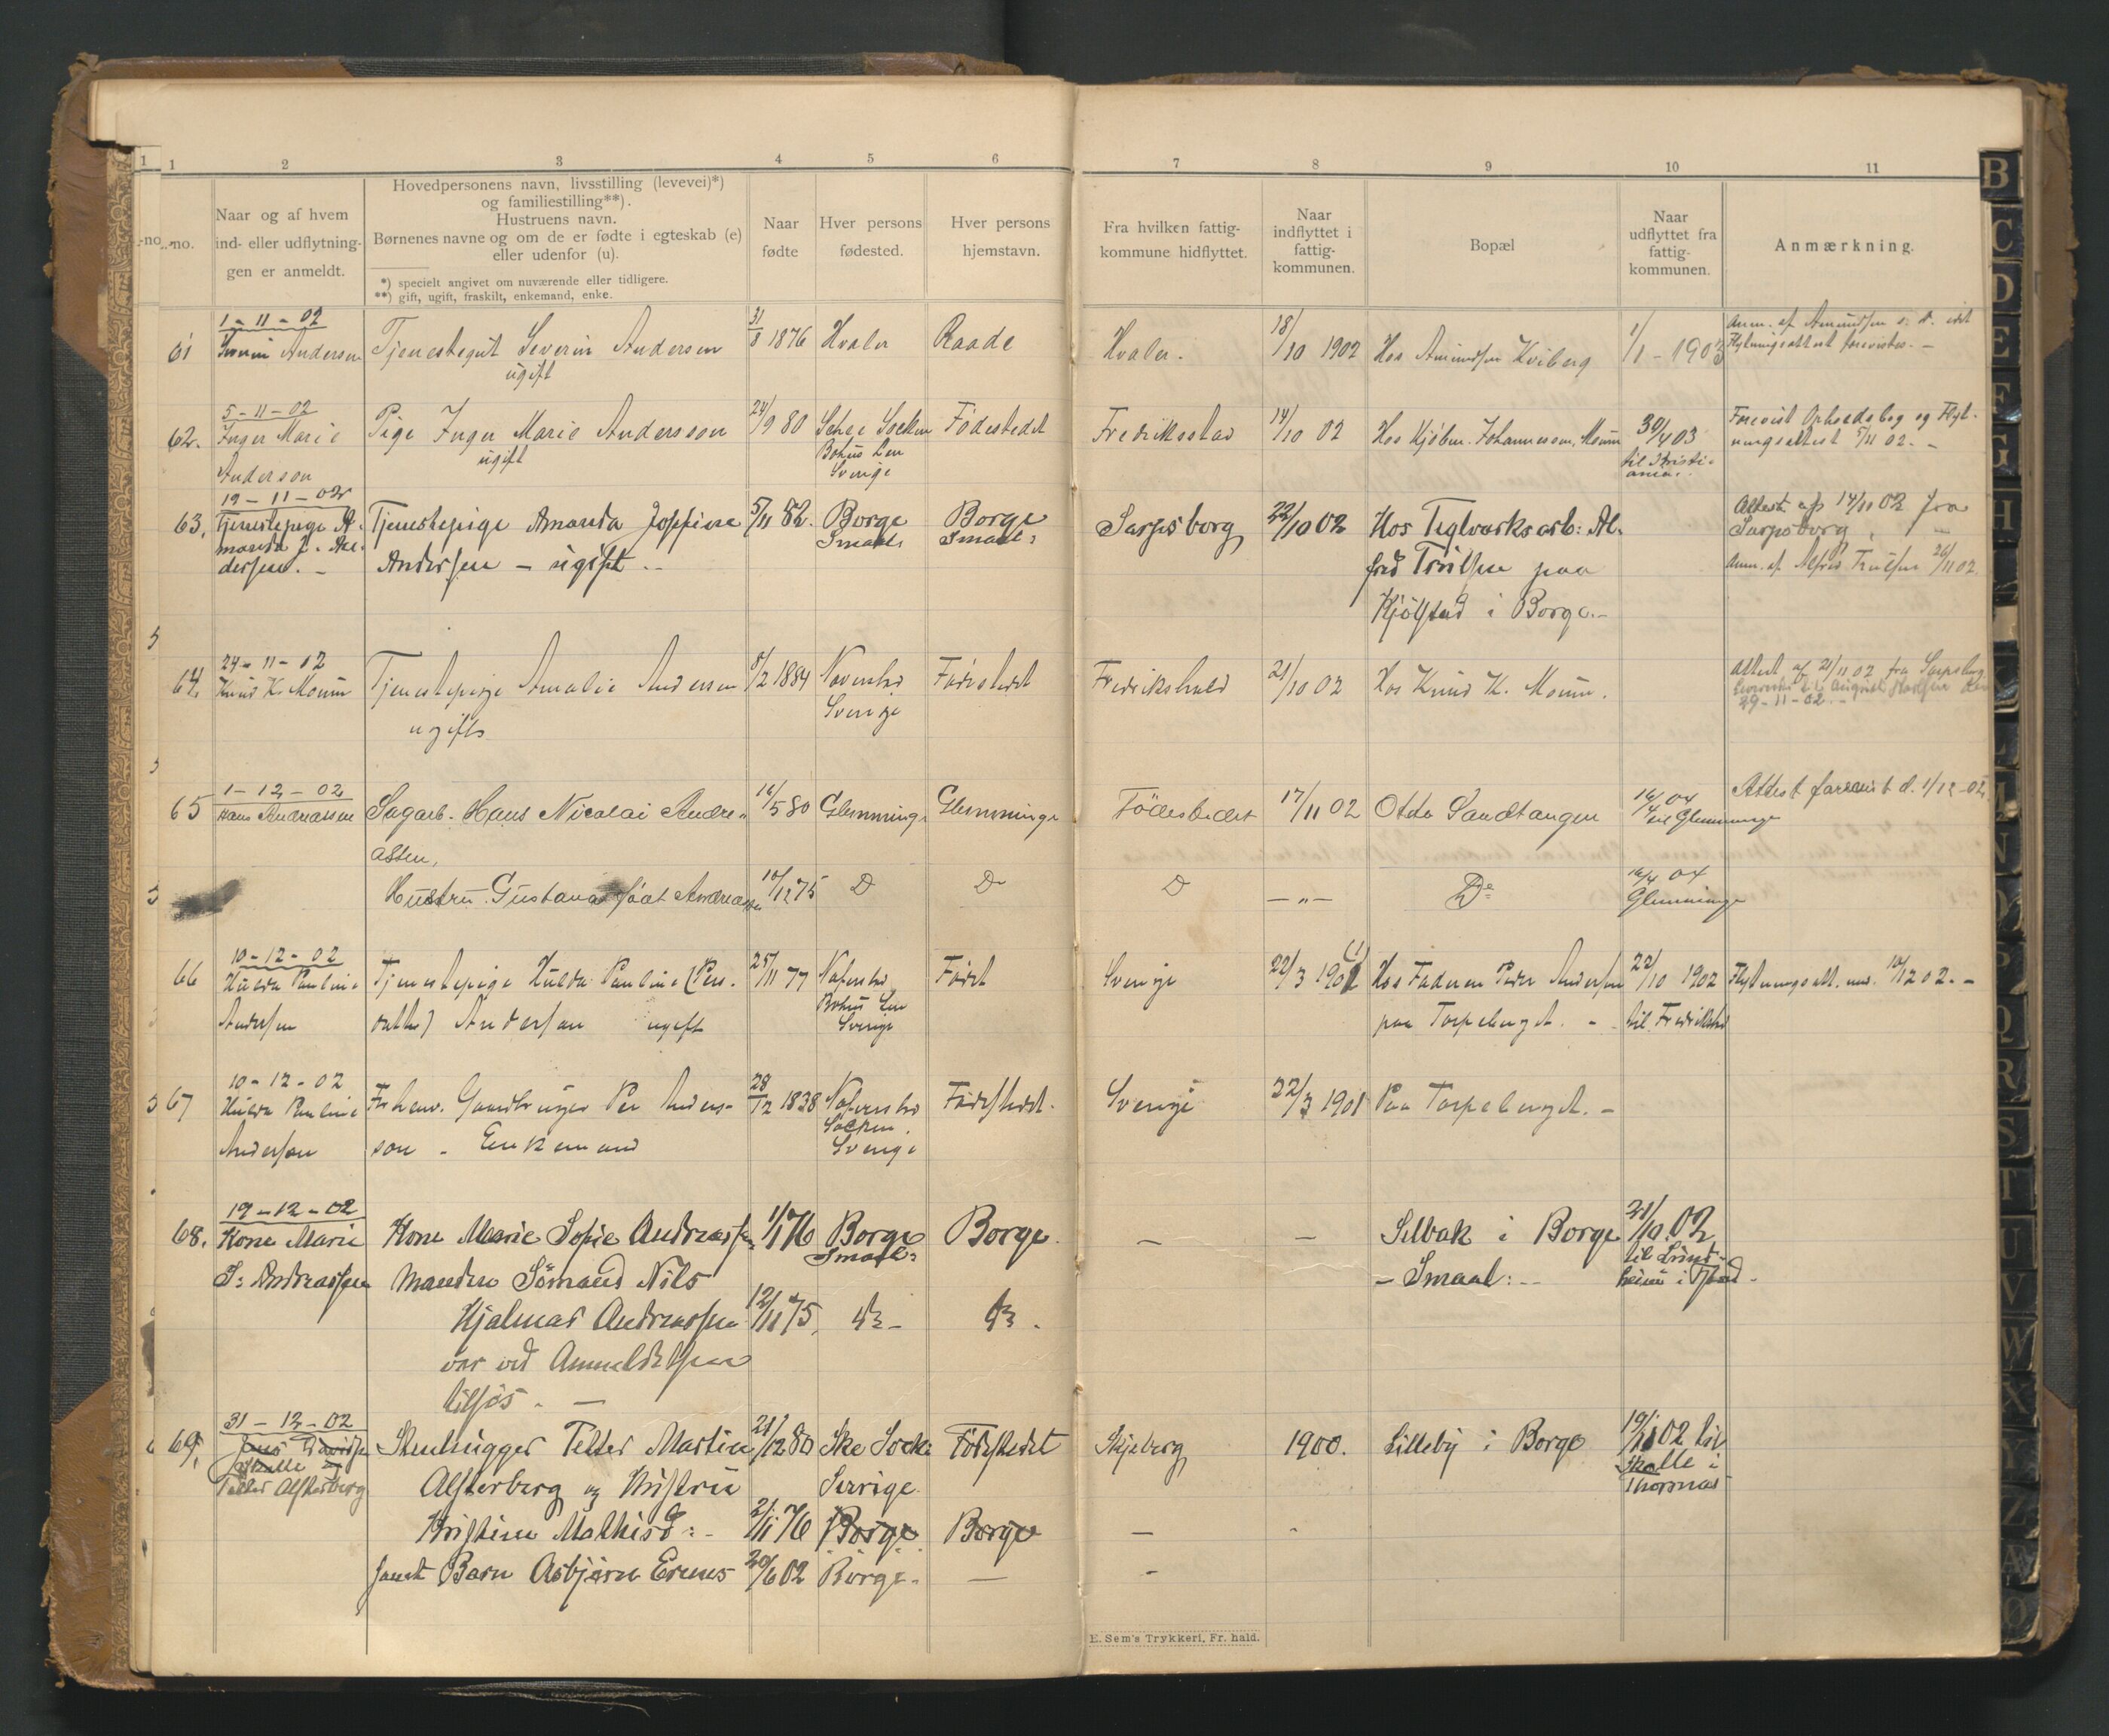 1 1 2 3 4 5 6 7 8 9 10 11
-no. -no.
Naar og af hvem
ind- eller udflytnin-
gen er anmeldt.
Hovedpersonens navn, livsstilling (levevei)*)
og familiestilling**).
Hustruens navn.
Børnenes navne og om de er fødte i egteskab (e)
eller udenfor (u).
*) specielt angivet om nuværende eller tidligere.
**) gift, ugift, fraskilt, enkemand, enke.
Naar
fødte
Hver persons
fødested.
Hver persons
hjemstavn.
Fra hvilken fattig-
kommune hidflyttet.
Naar
indflyttet i
fattig-
kommunen.
Bopæl
Naar
udflyttet fra
fattig-
kommunen.
Anmærkning.
61
1-11-02
Severin Andersen
Tjenestegut Severin Andersen
ugift
31/8 1876
Hvaler
Raade
Hvaler.
18/10 1902
Hos Amundsen Kviberg
1/1 - 1903
Anm. af Amundsen s. d. idet
Flytningsattest forevistes. -
62.
5-11-02
Inger Marie
Anderson
Pige Inger Marie Andersson
ugift
24/9 80
Socken
Bohus Len
Sverige
Fødestedet
Fredriksstad
14/10 02
Hos Kjøbm. Johannessen, Moum
30/4 03
til Kristi-
ania.
Forevist Opholdsbog og Flyt-
ningsattest 5/11 02. -
63.
19-11-02
Tjenestepige A-
manda J. An-
dersen. -
Tjenestepige Amanda Josefine
Andersen - ugift. -
5/11 82.
Borge
Smaal:
Borge
Smaal:
Sarpsborg
22/10 02
Hos Teglværksarb: Al-
fred Trulsen paa
Kjølstad i Borge. -
Attest af 14/11 02 fra
Sarpsborg. -
Anm. af Alfred Trulsen 26/11 02.
64.
24-11-02
Knud K. Moum
Tjenestepige Amalie Andersen
ugift
5/2 1884
Naverstad
Sverige
Fødestedet
Fredrikshald
21/10 02
Hos Knud K. Moum.
Attest af 21/11 02 fra Sarpsborg
29-11-02. -
65
1-12-02
Hans Andreassen
Sagarb. Hans Nicolai Andre-
assen,
16/5 80
Glemminge
Glemminge
Fødestedet
17/11 02
Otte Sandtangen
16/4 04
til Glemminge
Attest forevist d. 1/12-02.
Hustru Gustava født Andreassen
10/12 75
Do
Do
Do
- " -
Do
16/4 04
Glemminge
66
10-12-02
Hulda Pauline
Andersen
Tjenestepige Hulda Pauline (Pers-
datter) Andersen ugift
25/11 77
Naverstad
Bohus Len
Sverige
Fødest
Sverige
22/3 1901
Hos Faderen Peder Andersen
paa Torpeberget. -
22/10 1902
til Fredrikstad
Flytningsatt. med. 10/12 02. -
67
10-12-02
Hulda Pauline
Andersen
Forhenv. Gaardbruger Per Anders-
son - Enkemand
28/12 1838
Naverstad
Socken.
Sverige
Fødestedet.
Sverige
22/3 1901
Paa Torpeberget. -
68.
19-12-02
Kone Marie
S. Andreassen
Kone Marie Sofie Andreassen
Manden Sömand Nils
Hjalmar Andreassen
var ved Anmeldelsen
tilsjøs. -
1/1 76
Borge
Smaal:
Borge.
12/11 75,
do -
do.
-
-
Selbak i Borge
- Smaal: -
21/10 02
til
69,
31-12-02
Teller Alsterberg
Stenhugger Teller Martin
Alsterberg og Hustru
Kristine Mathisd: -
samt Barn Asbjørn Ernes
21/12 80
Ske Sock:
Sverige
Fødestedet
Skjeberg
1900.
Lilleby i Borge
19/11 02 til
Skolle i
Thorsnes
2/1 76
Borge
Borge
-
20/6 02
Borge.
-
-
E. Sem's Trykkeri, Fr. hald.
B
C
D
E
F
G
H
L
N
O
P
Q
R
S
T
U
V
W
X
Y
Z
Æ
Ø